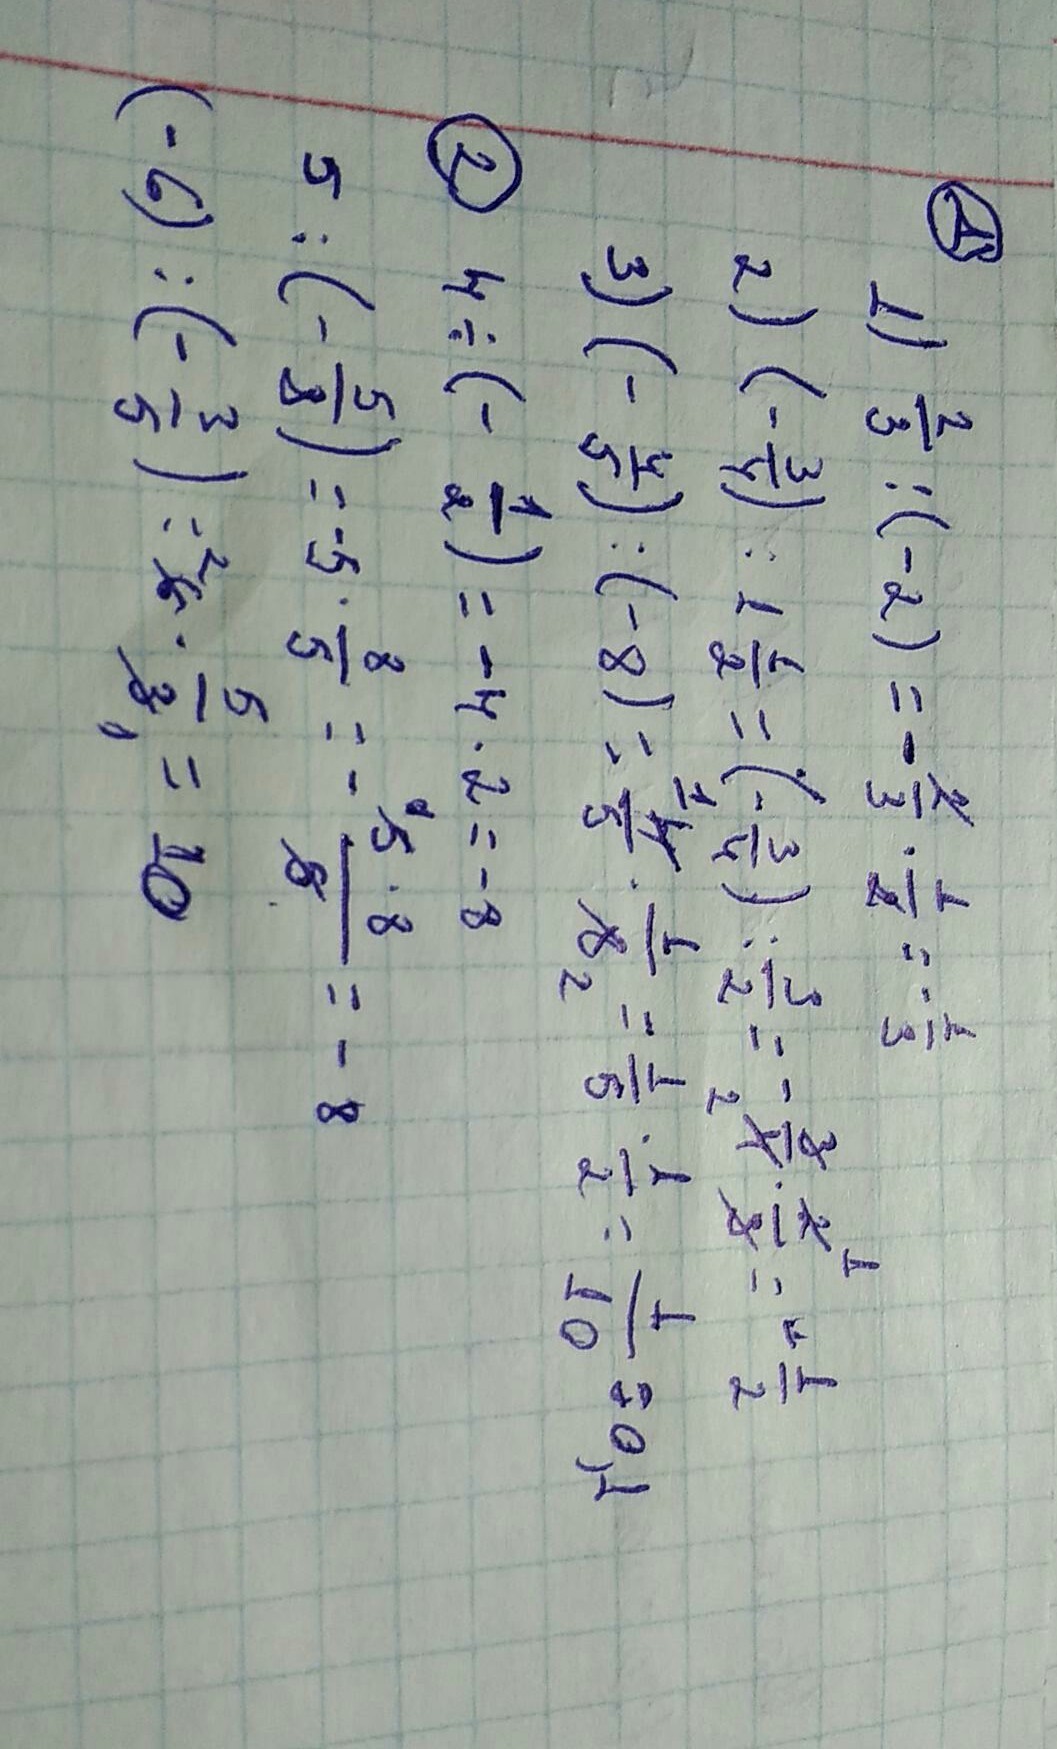 ①
1) 2/3 : (-2) = - 2/3 · 1/2 = - 1/3
2) (- 3/4) : 1 1/2 = (- 3/4) : 3/2 = - 3/4 · 2/3 = - 1/2
3) (- 4/5) : (-8) = 4/5 · 1/8 = 1/5 · 1/2 = 1/10 = 0,1
② 4 : (- 1/2) = -4 · 2 = -8
5 : (- 5/8) = -5 · 8/5 = - 5·8/5 = - 8
(-6) : (- 3/5) = 6 · 5/3 = 10